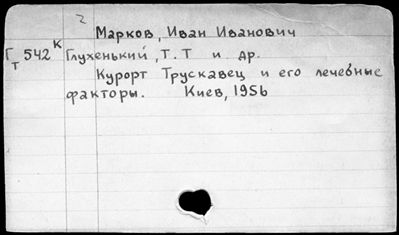 2 Марков, Иван Иванович
Г/Т 542 К Глухенький, Т. Т и др.
Курорт Трускавец и его лечебные
факторы. Киев, 1956